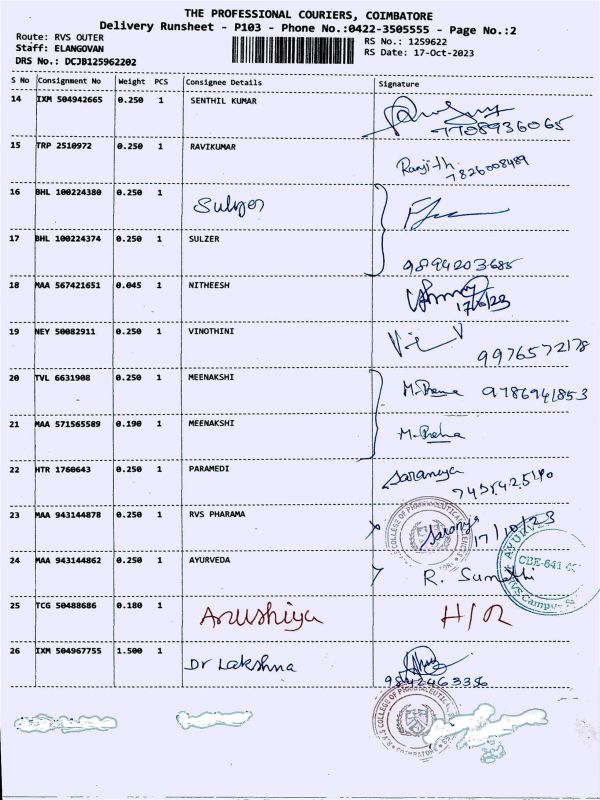 THE PROFESSIONAL COURIERS, COIMBATORE
Delivery Runsheet - P103 - Phone No.:0422-3505555 - Page No.:2
Route: RVS OUTER
RS No.: 1259622
Staff: ELANGOVAN
RS Date: 17-Oct-2023
DRS No.: DCJB125962202
S No Consignment No Weight PCS Consignee Details Signature
14 IXM 504942665 0.250 1 SENTHIL KUMAR
7708936065
15 TRP 2510972 0.250 1 RAVIKUMAR
Ranjith.
7826008489
16 BHL 100224380 0.250 1 Sulzer
17 BHL 100224374 0.250 1 SULZER
9894203685
18 MAA 567421651 0.045 1 NITHEESH
17/10/23
19 NEY 50082911 0.250 1 VINOTHINI
9976572178
20 TVL 6631908 0.250 1 MEENAKSHI 9786941853
21 MAA 571565589 0.190 1 MEENAKSHI
22 HTR 1760643 0.250 1 PARAMEDI Saranya
23 MAA 943144878 0.250 1 RVS PHARAMA Saranya 17/10/23
24 MAA 943144862 0.250 1 AYURVEDA R. Sumathi
25 TCG 50488686 0.180 1 Anushiya H/R
26 IXM 504967755 1.500 1 Dr Lakshna
9842463356